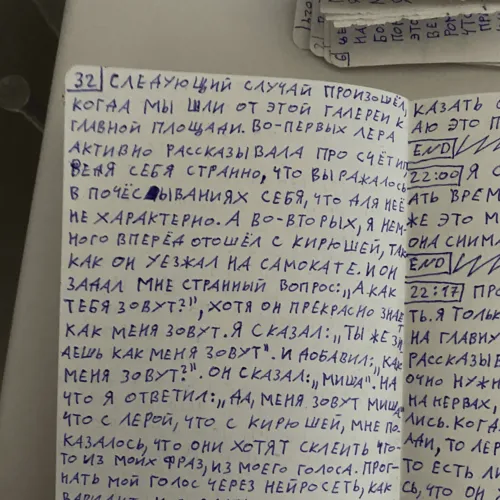 32 СЛЕДУЮЩИЙ СЛУЧАЙ ПРОИЗОШЁЛ,
КОГДА МЫ ШЛИ ОТ ЭТОЙ ГАЛЕРЕИ К
ГЛАВНОЙ ПЛОЩАДИ. ВО-ПЕРВЫХ ЛЕРА
АКТИВНО РАССКАЗЫВАЛА ПРО СЧЁТИП
ВЕЛЯ СЕБЯ СТРАННО, ЧТО ВЫРАЖАЛОСЬ
В ПОЧЁСЫВАНИЯХ СЕБЯ, ЧТО ДЛЯ НЕЁ
НЕ ХАРАКТЕРНО. А ВО-ВТОРЫХ, Я НЕМ-
НОГО ВПЕРЁД ОТОШЁЛ С КИРЮШЕЙ, ТАК
КАК ОН УЕЗЖАЛ НА САМОКАТЕ. И ОН
ЗАДАЛ МНЕ СТРАННЫЙ ВОПРОС: „А КАК
ТЕБЯ ЗОВУТ?", ХОТЯ ОН ПРЕКРАСНО ЗНАЕТ
КАК МЕНЯ ЗОВУТ. Я СКАЗАЛ: „ТЫ ЖЕ ЗН
АЕШЬ КАК МЕНЯ ЗОВУТ". И ДОБАВИЛ: „КАК
МЕНЯ ЗОВУТ?". ОН СКАЗАЛ: „МИША". НА
ЧТО Я ОТВЕТИЛ: „ДА, МЕНЯ ЗОВУТ МИША"
ЧТО С ЛЕРОЙ, ЧТО С КИРЮШЕЙ, МНЕ ПО-
КАЗАЛОСЬ, ЧТО ОНИ ХОТЯТ СКЛЕИТЬ ЧТО-
ТО ИЗ МОИХ ФРАЗ, ИЗ МОЕГО ГОЛОСА. ПРОГ-
НАТЬ МОЙ ГОЛОС ЧЕРЕЗ НЕЙРОСЕТЬ, КАК
КАЗАТЬ
АЮ ЭТО П
END
22:00 Я С
АТЬ ВРЕМ
ЖЕ ЭТО М
ОНА СНИМА
END
22:17 ПРО
ТЬ. Я ТОЛЬК
НА ГЛАВНУ
РАССКАЗЫВ
ОЧНО НУЖН
НА НЕРВАХ,
ЛИСЬ. КОГД
АДИ, ТО ЛЕР
ТО ЕСТЬ ЛИ
СЬ, ЧТО ОН